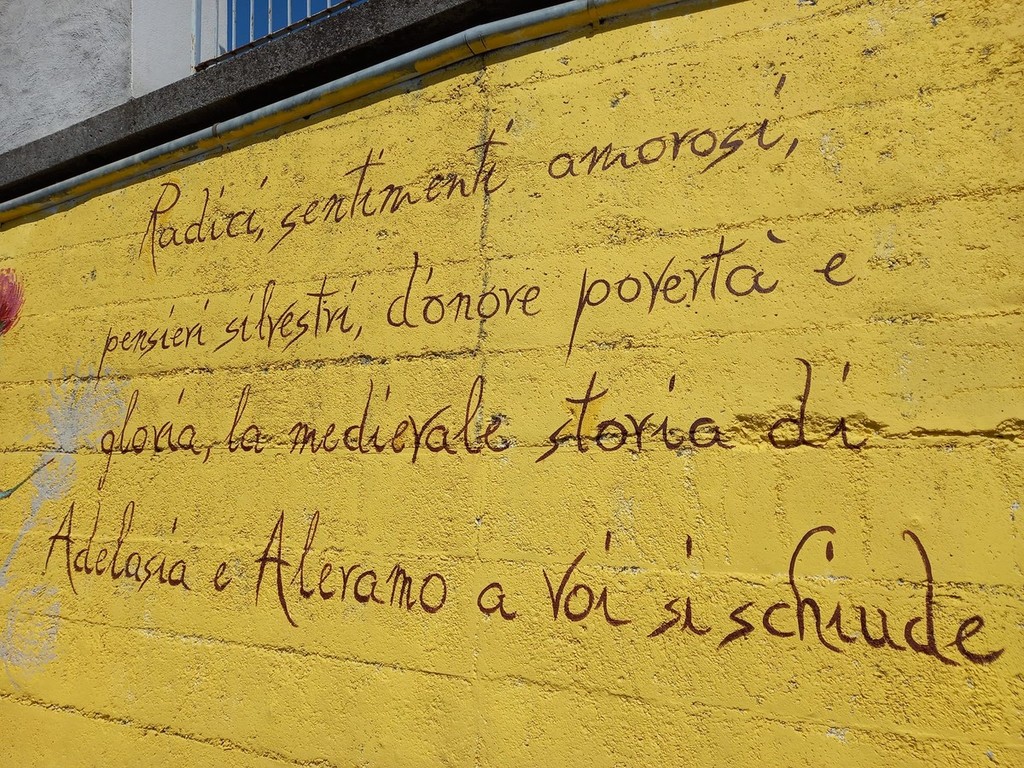 Radici, sentimenti amorosi,
pensieri silvestri, d'onore povertà e
gloria, la medievale storia di
Adelasia e Aleramo a voi si schiude